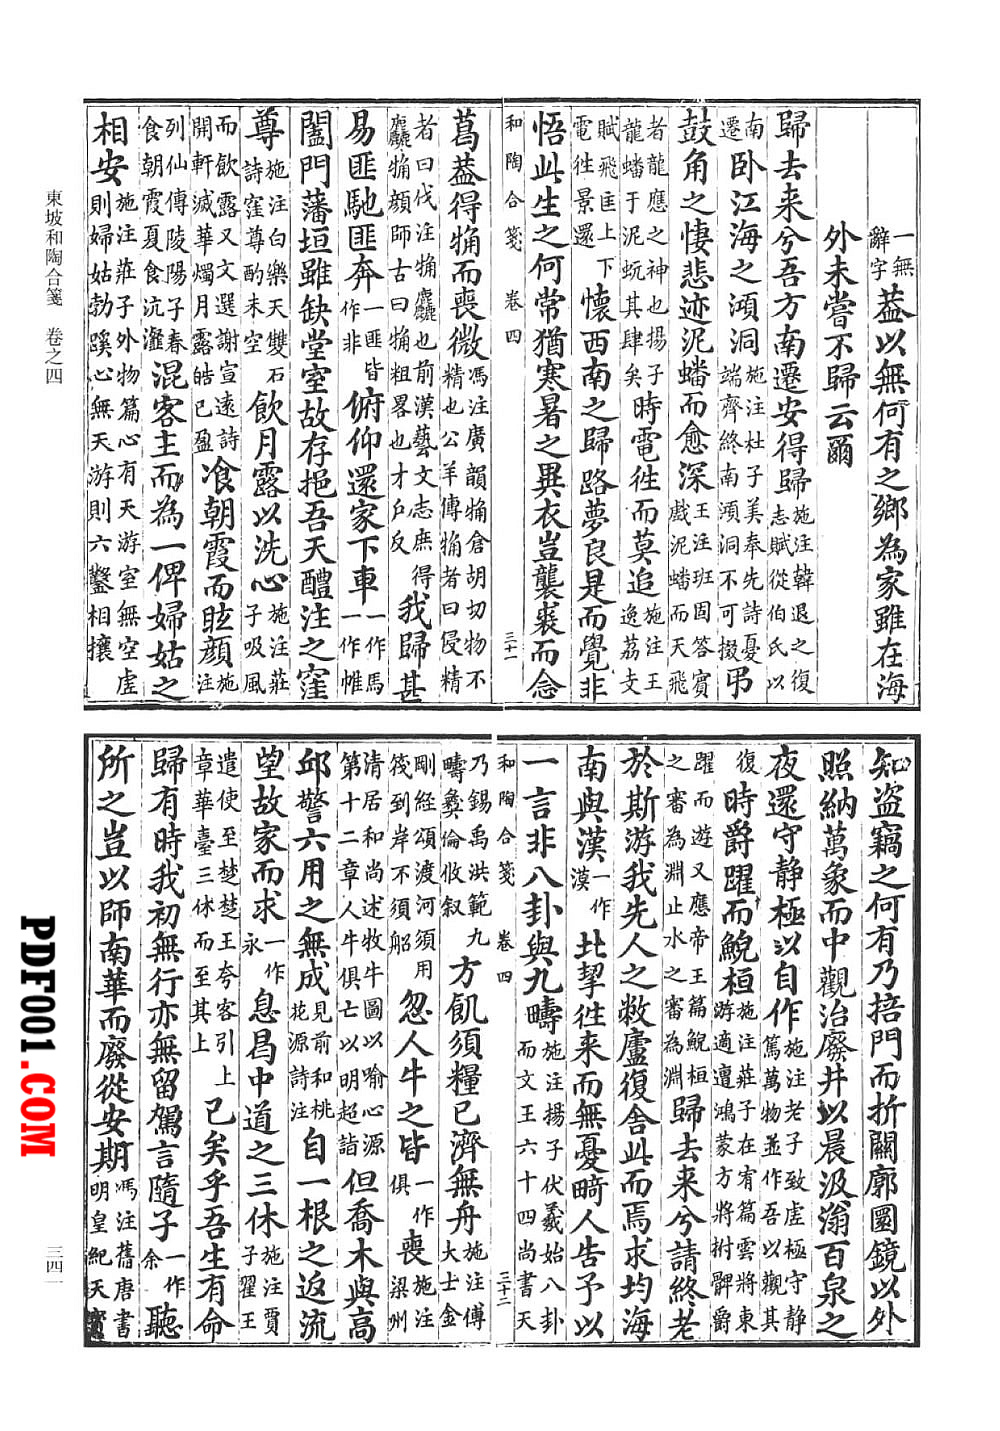 一無辭字蓋以無何有之鄉為家雖在海
外未嘗不歸云爾
歸去来兮吾方南遷安得歸施注韓退之復志賦從伯氏以
南遷卧江海之澒洞施注杜子美奉先詩憂端齊終南澒洞不可掇弔
鼓角之悽悲迹泥蟠而愈深王注班固答賓戲泥蟠而天飛
者龍應之神也揚子龍蟠于泥蚖其肆矣時電徃而莫追施注王逸荔支
賦飛匡上下電徃景還懷西南之歸路夢良是而覺非
悟此生之何常猶寒暑之異衣豈襲裘而念
和陶合箋 卷四 三十一
葛蓋得觕而喪微馮注廣韻觕倉胡切物不精也公羊傳觕者曰侵精
者曰伐注觕麤也前漢藝文志庶得麤觕顔師古曰觕粗畧也才戶反我歸甚
易匪馳匪奔一匪皆作非俯仰還家下車一作馬一作帷
闔門藩垣雖缺堂室故存挹吾天醴注之窪
尊施注白樂天雙石詩窪尊酌未空飲月露以洗心施注莊子吸風
而飲露又文選謝宣遠詩開軒滅華燭月露皓已盈飡朝霞而眩顔施注
列仙傳陵陽子春食朝霞夏食沆瀣混客主而為一俾婦姑之
相安施注莊子外物篇心有天游室無空虚則婦姑勃蹊心無天游則六鑿相攘
知盗竊之何有乃掊門而折關廓圜鏡以外
照納萬象而中觀治廢井以晨汲滃百泉之
夜還守静極以自作施注老子致虚極守静篤萬物並作吾以觀其
復時爵躍而鯢桓施注莊子在宥篇雲將東游適遭鴻蒙方將拊髀爵
躍而遊又應帝王篇鯢桓之審為淵止水之審為淵歸去来兮請終老
於斯游我先人之敝廬復舍此而焉求均海
南與漢一作漠北挈徃来而無憂畸人告予以
一言非八卦與九疇施注揚子伏羲始八卦而文王六十四尚書天
和陶合箋 卷四 三十二
乃錫禹洪範九疇彝倫攸叙方飢須糧已濟無舟施注傅大士金
剛經頌渡河須用筏到岸不須船忽人牛之皆一作俱喪施注梁州
清居和尚述牧牛圖以喻心源第十二章人牛俱亡以明超詣但喬木與高
邱警六用之無成見前和桃花源詩注自一根之返流
望故家而求一作永息曷中道之三休施注賈子翟王
遣使至楚楚王夸客引上章華臺三休而至其上已矣乎吾生有命
歸有時我初無行亦無留駕言隨子一作余聽
所之豈以師南華而廢從安期馮注舊唐書明皇紀天寳
東坡和陶合箋 卷之四
三四一
PDF001.COM